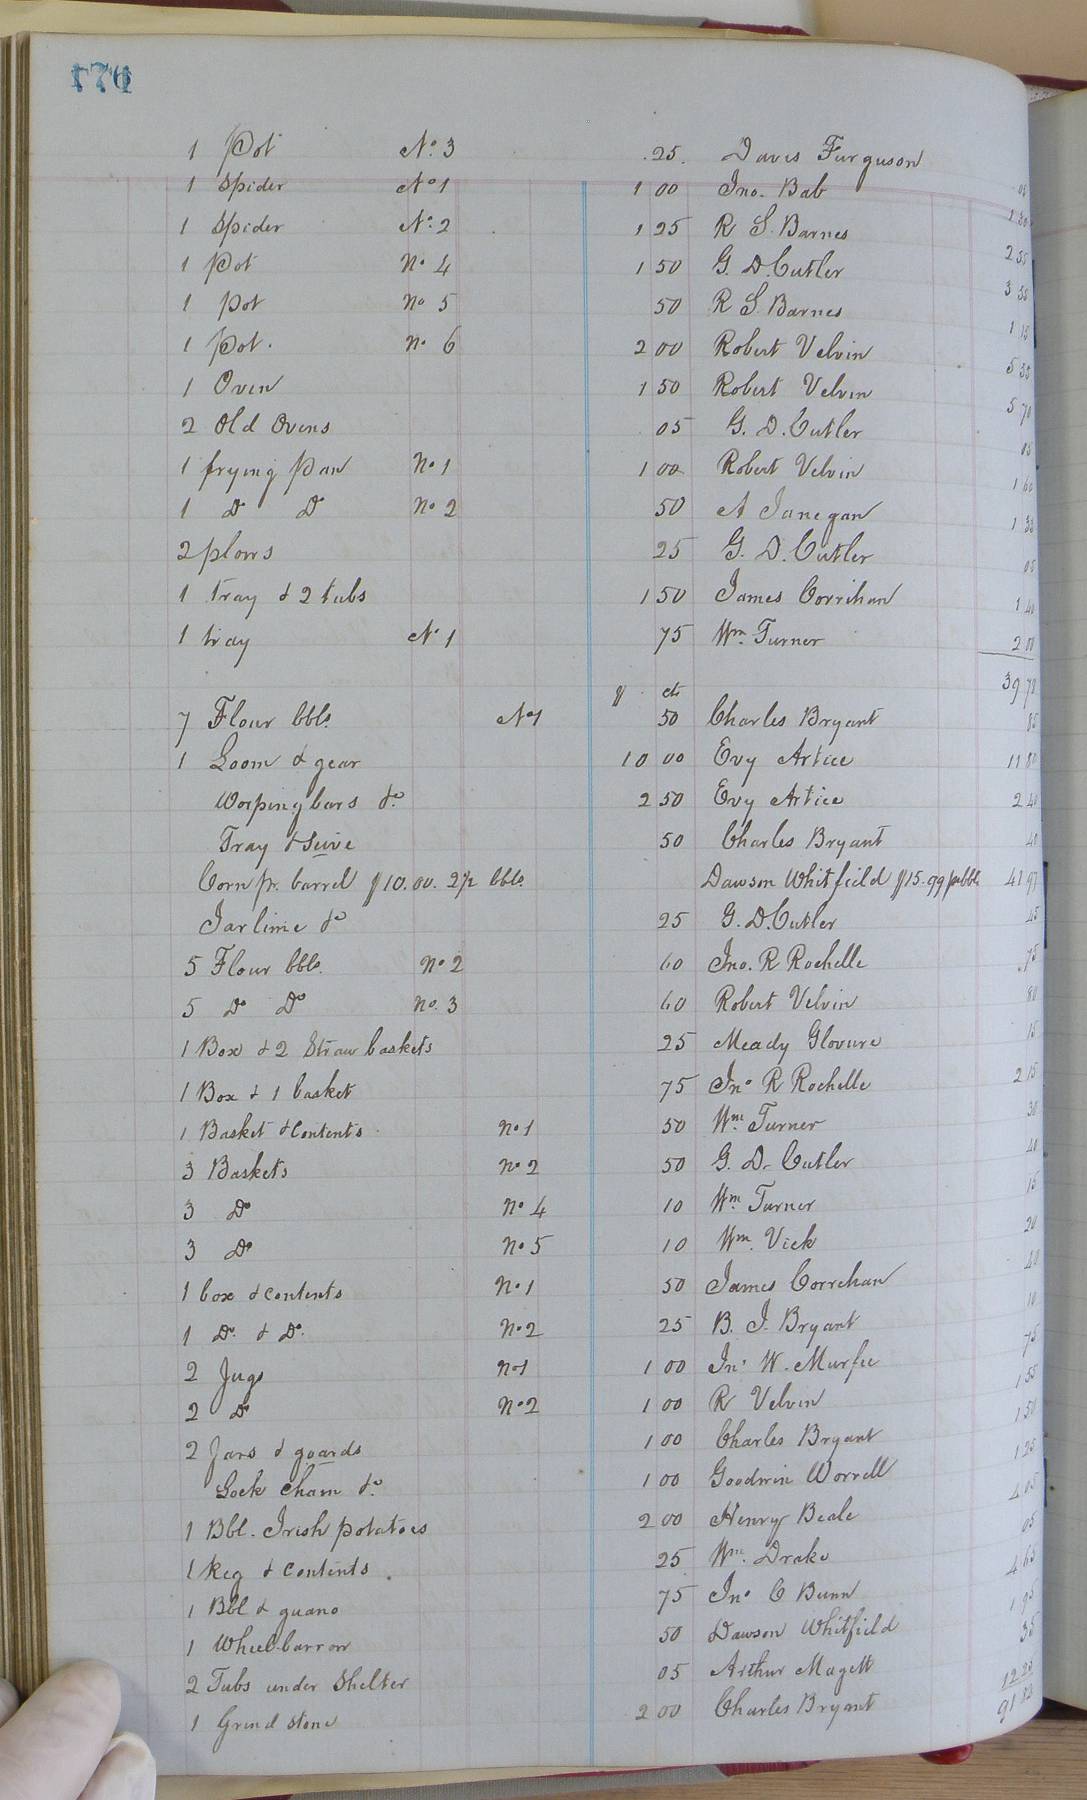 176
1 Pot No. 3 .25. Davis Furguson
1 Spider No 1 1 00 Jno. Bab 05
1 Spider No. 2 1 25 R S. Barnes 1 30
1 Pot No 4 1 50 G. D. Cutler 2 55
1 Pot No 5 50 R S. Barnes 3 55
1 Pot. No 6 2 00 Robert Velvin 1 15
1 Oven 1 50 Robert Velvin 5 55
2 Old Ovens 05 G. D. Cutler 5 70
1 frying Pan No 1 1 00 Robert Velvin 05
1 Do Do No 2 50 A Janegan 1 60
2 plows 25 G. D. Cutler 1 35
1 Tray & 2 tubs 1 50 James Corrihan 05
1 tray No 1 75 Wm. Turner 1 40
2 00
$ cts 39 70
7 Flour bbls. No 1 50 Charles Bryant 85
1 Loom & gear 10 00 Evy Artice 11 80
Worping bars &c 2 50 Evy Artice 2 40
Tray & Seive 50 Charles Bryant 40
Corn pr. barrel $10.00. 2½ bbls. Dawson Whitfield $15.99 pr bbl 41 97
Jar lime &c 25 G. D. Cutler 45
5 Flour bbls. No 2 60 Jno. R Rochelle 75
5 Do Do No. 3 60 Robert Velvin 80
1 Box & 2 Straw baskets 25 Meady Glovure 15
1 Box & 1 basket 75 Jno R Rochelle 2 15
1 Basket & Contents No 1 50 Wm. Turner 30
3 Baskets No 2 50 G. D. Cutler 40
3 Do No 4 10 Wm. Turner 15
3 Do No 5 10 Wm. Vick 20
1 box & contents No 1 50 James Correhan 40
1 Do. & Do. No 2 25 B. J. Bryant 10
2 Jugs No 1 1 00 Jno W. Murfee 75
2 Do No 2 1 00 R Velvin 1 55
2 Jars & goards 1 00 Charles Bryant 1 50
Lock Chain &c 1 00 Goodwin Worrell 1 25
1 Bbl. Irish potatoes 2 00 Henry Beale 4 05
1 Keg & contents. 25 Wm. Drake 05
1 Bbl & guano 75 Jno C Bunn 4 65
1 Wheel-barrow 50 Dawson Whitfield 1 95
2 Tubs under Shelter 05 Arthur Magett 35
1 Grind stone 2 00 Charles Bryant 12 23
91 82